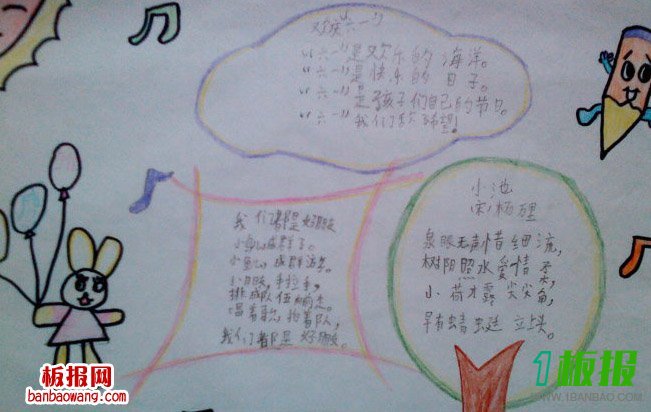 欢庆"六一"
"六一"是欢乐的海洋。
"六一"是快乐的日子。
"六一"是孩子们自己的节日。
"六一"我们的希望!
我们都是好朋友
小鸟成群飞。
小鱼成群游。
小朋友,手拉手,
排成队伍
唱着歌,拍着队,
我们都是好朋友。
小池
宋 杨
泉眼无声惜细流,
树阴照水爱情柔,
小荷才露尖尖角,
早有蜻蜓立上头。
板报网
banbaowang.com
1板报
WWW.1BANBAO.COM